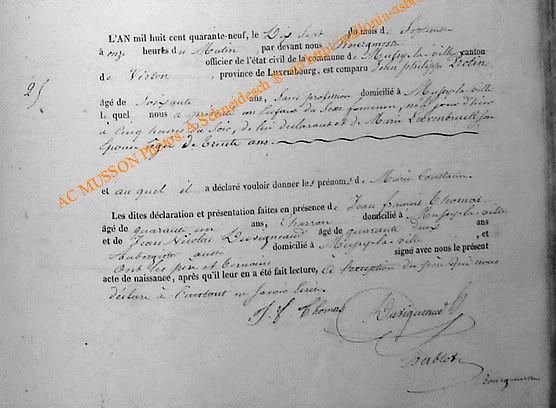 L'AN mil huit cent quarante-neuf, le Dix Sept du mois de
à onze heures du Matin, par devant nous Bourgmestre
officier de l'état civil de la commune de Mussy-la-ville canton
de Virton, province de Luxembourg, est comparu Jean philippe
25
âgé de Soixante ans, Sans profession domicilié à Mussy-la-ville
lequel nous a présenté un Enfant du Sexe féminin, né le jour d'hier
à Cinq heures du Soir, de lui déclarant et de Marie Son
Epouse âgée de trente ans.
et auquel il a déclaré vouloir donner les prénoms de Marie
Les dites déclaration et présentation faites en présence de Jean francois Thomas
âgé de quarante un ans, Charron domicilié à Mussy-la-ville
et de Jean Nicolas Duvigneaud âgé de quarante deux ans
Aubergiste aussi domicilié à Mussy-la-ville, et
Ont les père et témoins signé avec nous le présent
acte de naissance, après qu'il leur en a été fait lecture, à l'exception du père qui nous
déclare à l'instant ne savoir écrire.
J. f Thomas Duvigneaud
Bourgmestre
AC MUSSON Photos A.Schneidesch